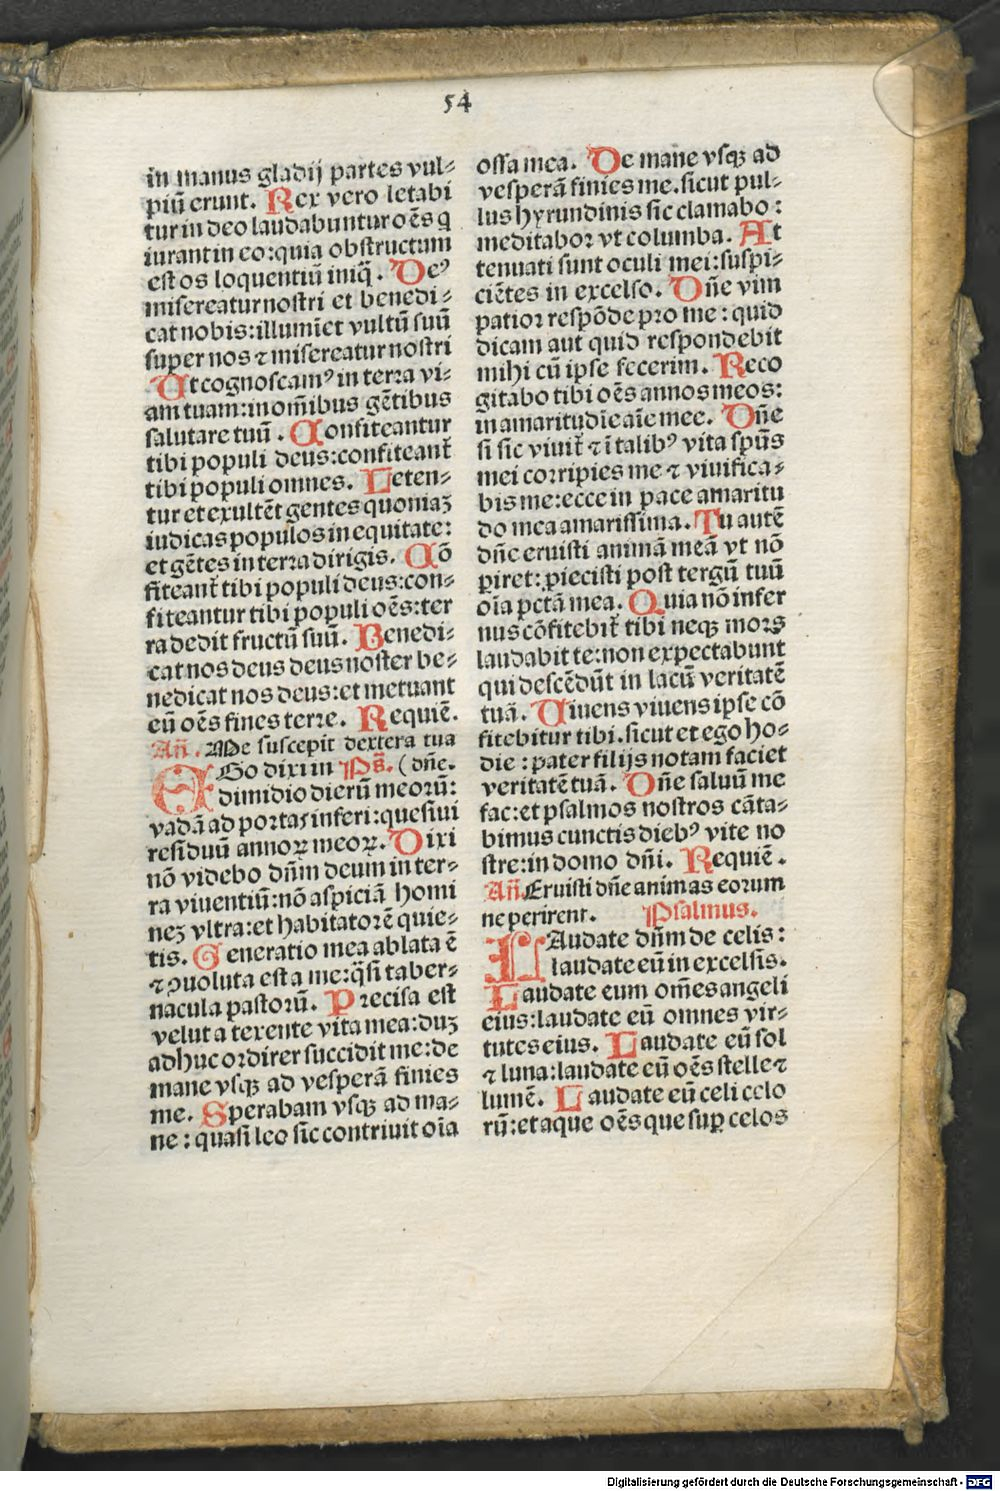 54
in manus gladij partes vul⸗
piū erunt. Rex vero letabi
tur in deo laudabuntur oēs q
iurant in eo:quia obstructum
est os loquentiū iniq̄. Deꝰ
misereatur nostri et benedi⸗
cat nobis:illumīet vultū suū
super nos ⁊ misereatur nostri
Ut cognoscamꝰ in terra vi⸗
am tuam:in om̄ibus gētibus
salutare tuū. Confiteantur
tibi populi deus:confiteant᷑
tibi populi omnes. Leten⸗
tur et exultēt gentes quoniaꝫ
iudicas populos in equitate:
et gētes in terra dirigis. Cō
fiteant᷑ tibi populi deus:con⸗
fiteantur tibi populi oēs:ter
ra dedit fructū suū. Benedi⸗
cat nos deus deus noster be⸗
nedicat nos deus:et metuant
eū oēs fines terre. Requiē.
Añ. Me suscepit dextera tua
EGo dixi in Ps̄. (dñe.
dimidio dierū meorū:
vadā ad portas inferi:quesiui
residuū annoꝝ meoꝝ. Dixi
nō videbo dñm deum in ter⸗
ra viuentiū:nō aspiciā homi
neꝫ vltra:et habitatorē quie⸗
tis. Generatio mea ablata ē
⁊ ꝯuoluta est a me:q̄si taber⸗
nacula pastorū. Precisa est
velut a texente vita mea:duꝫ
adhuc ordirer succidit me:de
mane vsqꝫ ad vesperā finies
me. Sperabam vsqꝫ ad ma⸗
ne: quasi leo sic contriuit oīa
ossa mea. De mane vsqꝫ ad
vesperā finies me.sicut pul⸗
lus hyrundinis sic clamabo:
meditabor vt columba. At
tenuati sunt oculi mei:suspi⸗
ciētes in excelso. Dñe vim
patior respōde pro me: quid
dicam aut quid respondebit
mihi cū ipse fecerim. Reco
gitabo tibi oēs annos meos:
in amaritudīe aīe mee. Dñe
si sic viuit᷑ ⁊ ī talibꝰ vita sp̄us
mei corripies me ⁊ viuifica⸗
bis me:ecce in pace amaritu
do mea amarissima. Tu autē
dñe eruisti animā meā vt nō
ꝑiret: ꝓiecisti post tergū tuū
oīa pctā mea. Quia nō infer
nus cōfitebit᷑ tibi neqꝫ mors
laudabit te:non expectabunt
qui descēdūt in lacū veritatē
tuā. Uiuens viuens ipse cō
fitebitur tibi.sicut et ego ho⸗
die: pater filijs notam faciet
veritatē tuā. Dñe saluū me
fac:et psalmos nostros cāta⸗
bimus cunctis diebꝰ vite no
stre:in domo dñi. Requiē.
Añ. Eruisti dñe animas eorum
ne perirent. Psalmus.
LAudate dñm de celis:
laudate eū in excelsis.
Laudate eum om̄es angeli
eius:laudate eū omnes vir⸗
tutes eius. Laudate eū sol
⁊ luna:laudate eū oēs stelle ⁊
lumē. Laudate eū celi celo
rū:et aque oēs que suꝑ celos
Digitalisierung gefördert durch die Deutsche Forschungsgemeinschaft - DFG